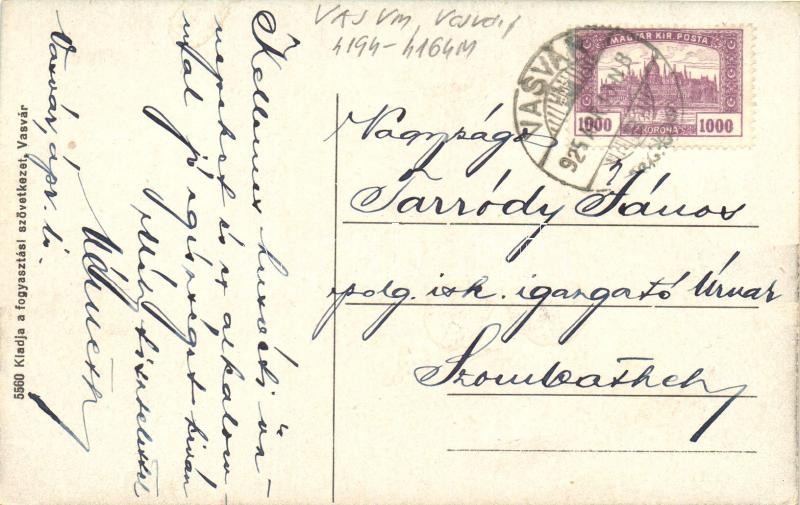 VAS VM, Vasvár
4194-4164M
MAGYAR KIR. POSTA
1000 KORONA 1000
VASVÁR
925
Nagyságos
Tarródy János
polg. isk. igazgató Úrnak
Szombathely
Kellemes husvéti ün-
nepeket és ez alkalom-
mal jó egészséget kiván
Mély tisztelettel
Vasvár, ápr. 11.
5560 Kiadja a fogyasztási szövetkezet, Vasvár